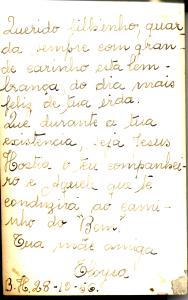 Querido filhinho, guar
da sempre com gran-
de carinho esta lem-
brança do dia mais
feliz de tua vida.
Que durante a tua
existencia, seja Jesus
Hostia o teu companhei-
ro e Aquele que te
conduzirá ao cami-
nho do "Bem".
Tua mãe amiga,
Eloysa
B.H, 28-10-56.